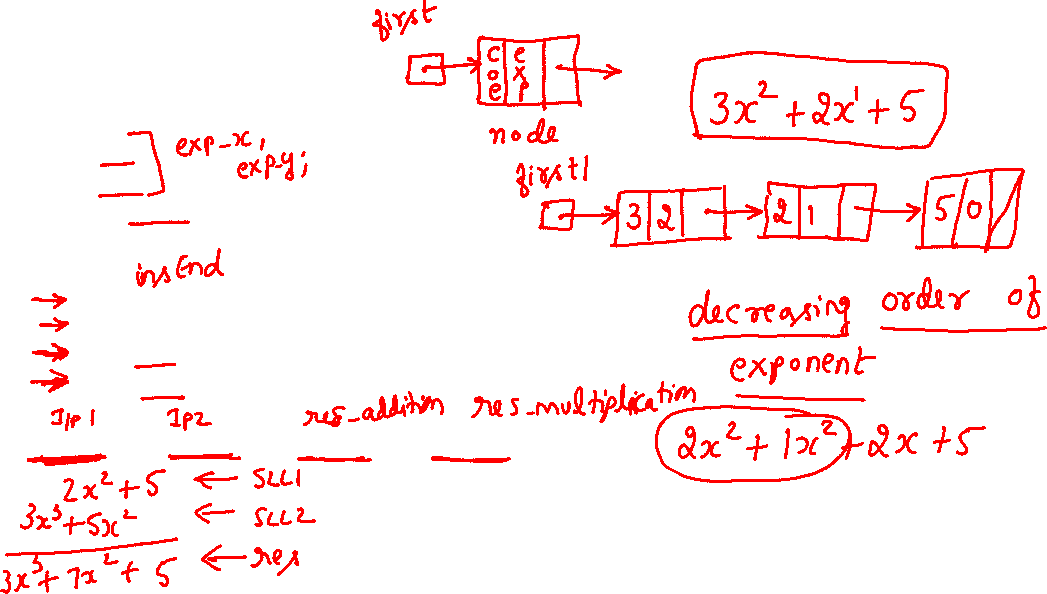 first
coe exp
node
3x² + 2x¹ + 5
exp-x,
exp-y;
first1
3 2
2 1
5 0
insEnd
decreasing order of
exponent
I/P1 IP2 res_addition res_multiplication
2x² + 1x² + 2x + 5
2x² + 5 ← SLL1
3x³ + 5x² ← SLL2
3x³ + 7x² + 5 ← res